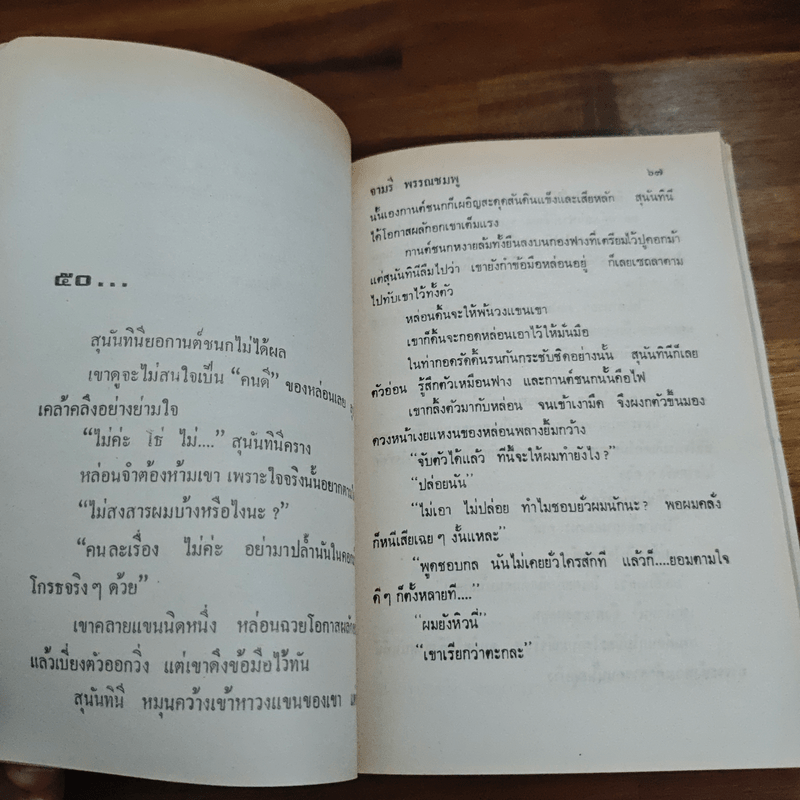 ๕๐...
สุนันทินียอกานต์ชนกไม่ได้ผล
เขาดูจะไม่สนใจเป็น “คนดี” ของหล่อนเลย
เคล้าคลึงอย่างย่ามใจ
“ไม่ค่ะ โธ่ ไม่....” สุนันทินีคราง
หล่อนจำต้องห้ามเขา เพราะใจจริงนั้นอยากตาม
“ไม่สงสารผมบ้างหรือไงนะ ?”
“คนละเรื่อง ไม่ค่ะ อย่ามาปล้ำนันในคอก
โกรธจริงๆ ด้วย”
เขาคลายแขนนิดหนึ่ง หล่อนฉวยโอกาสผลัก
แล้วเบี่ยงตัวออกวิ่ง แต่เขาดึงข้อมือไว้ทัน
สุนันทินี หมุนคว้างเข้าหาวงแขนของเขา
จามรี พรรณชมพู ๖๗
นั้นเองกานต์ชนกก็เผอิญสะดุดสันดินแข็งและเสียหลัก สุนันทินี
ได้โอกาสผลักอกเขาเต็มแรง
กานต์ชนกหงายล้มทั้งยืนลงบนกองฟางที่เตรียมไว้ปูคอกม้า
แต่สุนันทินีลืมไปว่า เขายังกำข้อมือหล่อนอยู่ ก็เลยเซถลาตาม
ไปทับเขาไว้ทั้งตัว
หล่อนดิ้นจะให้พ้นวงแขนเขา
เขาก็ดิ้นจะกอดหล่อนเอาไว้ให้มั่นมือ
ในท่ากอดรัดดิ้นรนกันกระชับชิดอย่างนั้น สุนันทินีก็เลย
ตัวอ่อน รู้สึกตัวเหมือนฟาง และกานต์ชนกนั้นคือไฟ
เขากลิ้งตัวมากับหล่อน จนเข้าเงามืด จึงผงกตัวขึ้นมอง
ดวงหน้าเงยแหงนของหล่อนพลางยิ้มกว้าง
“จับตัวได้แล้ว ทีนี้จะให้ผมทำยังไง ?”
“ปล่อยนัน”
“ไม่เอา ไม่ปล่อย ทำไมชอบยั่วผมนักนะ ? พอผมคลั่ง
ก็หนีเสียเฉย ๆ งั้นแหละ”
“พูดชอบกล นันไม่เคยยั่วใครสักที แล้วก็....ยอมตามใจ
ดีๆ ก็ตั้งหลายที....”
“ผมยังหิวนี่”
“เขาเรียกว่าตะกละ”